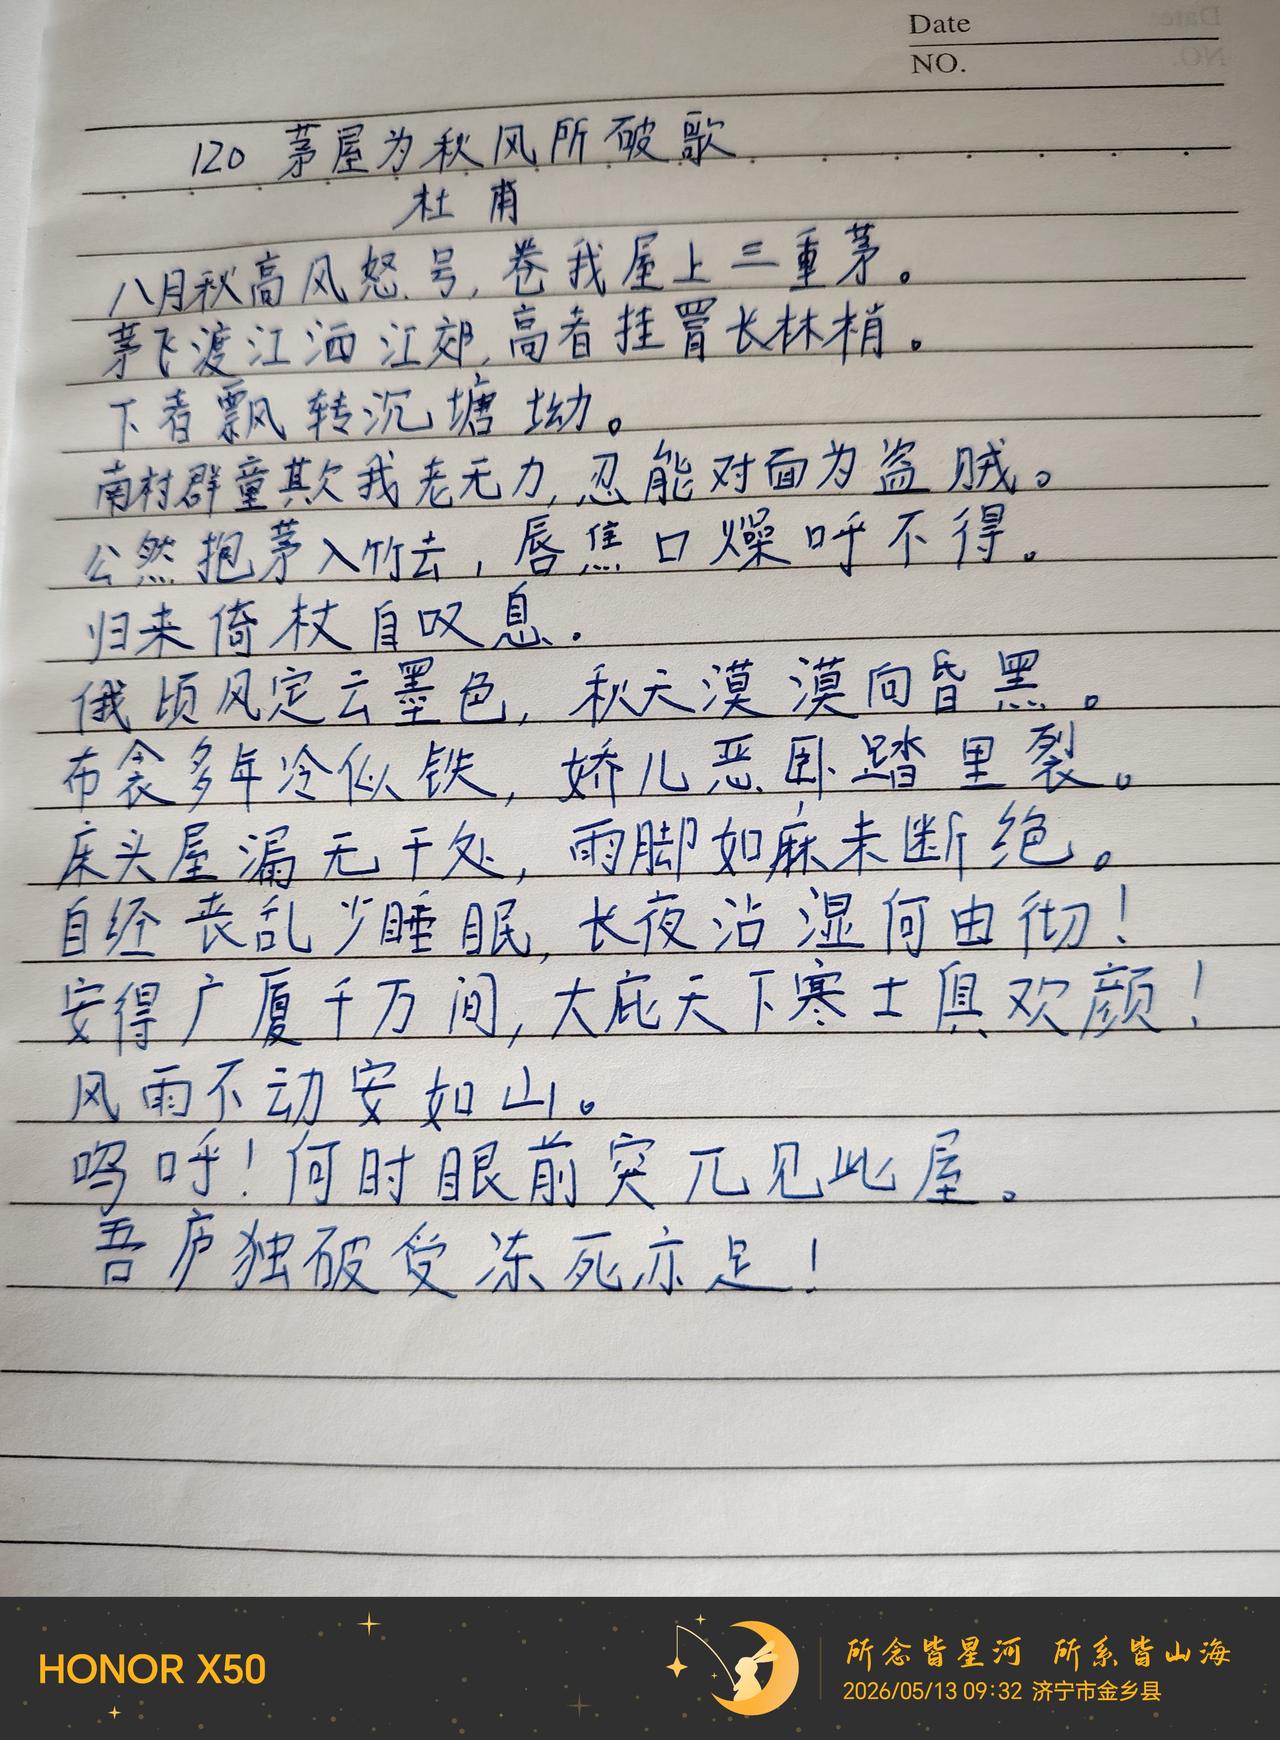 Date
NO.
120 茅屋为秋风所破歌
杜甫
八月秋高风怒号,卷我屋上三重茅。
茅飞渡江洒江郊,高者挂罥长林梢。
下者飘转沉塘坳。
南村群童欺我老无力,忍能对面为盗贼。
公然抱茅入竹去,唇焦口燥呼不得。
归来倚杖自叹息.
俄顷风定云墨色,秋天漠漠向昏黑。
布衾多年冷似铁,娇儿恶卧踏里裂。
床头屋漏无干处,雨脚如麻未断绝。
自经丧乱少睡眠,长夜沾湿何由彻!
安得广厦千万间,大庇天下寒士俱欢颜!
风雨不动安如山。
呜呼!何时眼前突兀见此屋。
吾庐独破受冻死亦足!
HONOR X50
所念皆星河 所系皆山海
2026/05/13 09:32 济宁市金乡县